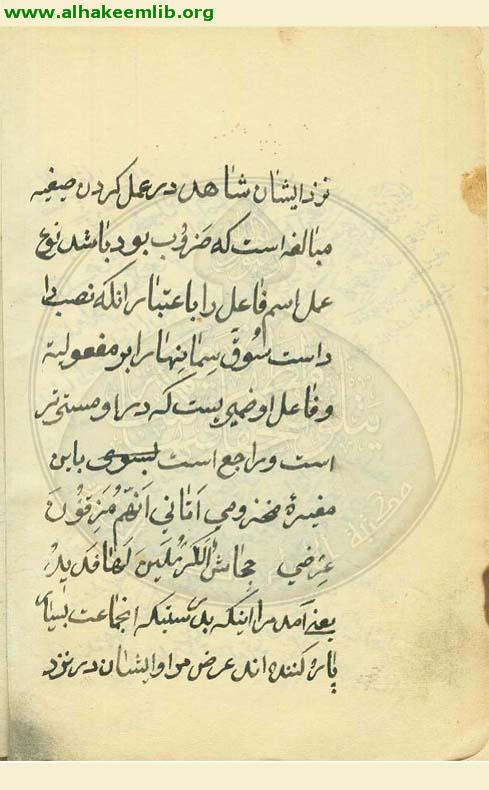 www.alhakeemlib.org
نزد ایشان شاهد در عمل کردن صیغهٔ
مبالغه است که ضروب بود باشد نوع
عمل اسم فاعل را باعتبار انکه نصب دا
داست سُوقَ سِمانِهٰا را بر مفعولیة
و فاعل او ضمیریست که در او مستتر
است و راجع است بسوی باین
مغیرهٔ مخزومی اَتٰانِی اَنَّهُم مَزِقُونَ
عِرْضي جِحٰاشُ الکَرْمَلَینَ لَهٰا فَدیدُ
یعنی آمد مرا اینکه بدرستیکه انجماعت بسیار
پاره کننده اند عرض مرا و ایشان در نزد